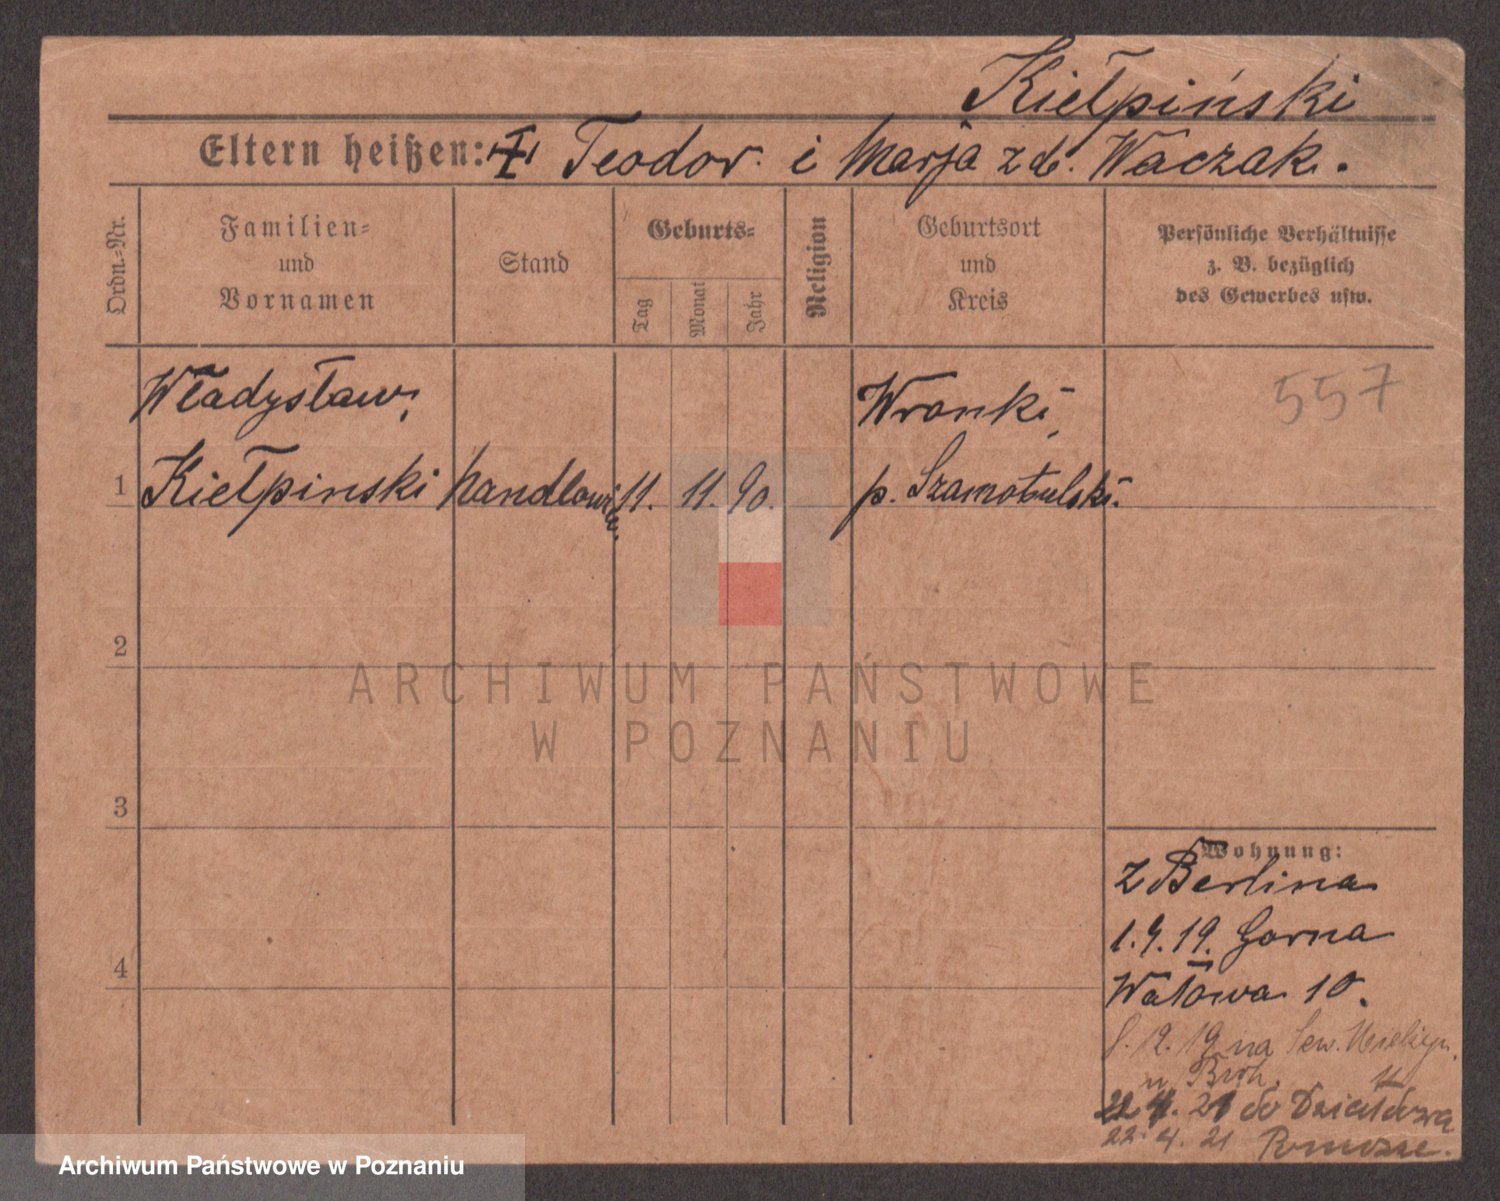 Kiełpiński
Eltern heißen: Teodor. i Marja z d. Waczak.
Ordn.=Nr.
Familien=
und
Vornamen
Stand
Geburts=
Tag
Monat
Jahr
Religion
Geburtsort
und
Kreis
Persönliche Verhältnisse
z. B. bezüglich
des Gewerbes usw.
Władysław,
Wronki,
557
1 Kiełpinski handlowiec 11. 11. 90. p. Szamotulski.
2
ARCHIWUM PAŃSTWOWE
W POZNANIU
3
Wohnung:
z Berlina
1.9.19. Gorna
4
Wałowa 10.
8. 12. 19 na
u Broh.
22 4. 21 do Działdowa
22. 4. 21 Pomorze.
Archiwum Państwowe w Poznaniu